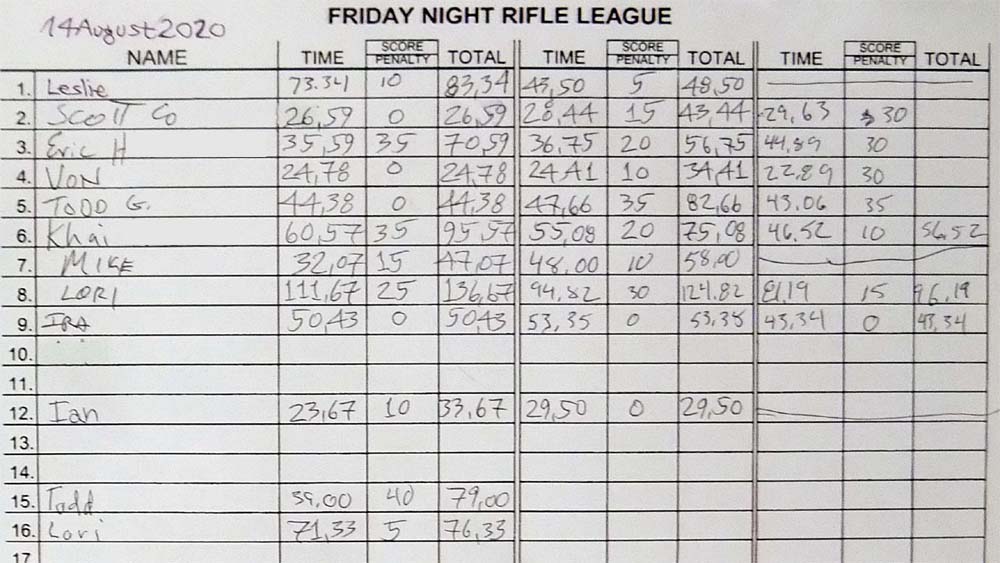 FRIDAY NIGHT RIFLE LEAGUE
14 August 2020
NAME TIME SCORE PENALTY TOTAL TIME SCORE PENALTY TOTAL TIME SCORE PENALTY TOTAL
1. Leslie 73.341 10 83,34 43,50 5 48,50
2. Scott Co 26,59 0 26,59 28,44 15 43,44 29,63 30
3. Eric H 35,59 35 70,59 36,75 20 56,75 44,89 30
4. VON 24,78 0 24,78 24,41 10 34,41 22,89 30
5. TODD G. 44,38 0 44,38 47,66 35 82,66 43,06 35
6. Khai 60,57 35 95,57 55,08 20 75,08 46,52 10 56,52
7. MIKE 32,07 15 47,07 48,00 10 58,00
8. LORI 111,67 25 136,67 94,82 30 124,82 81,19 15 96,19
9. IRA 50,43 0 50,43 53,35 0 53,35 43,34 0 43,34
10.
11.
12. Ian 23,67 10 33,67 29,50 0 29,50
13.
14.
15. Todd 39,00 40 79,00
16. Lori 71,33 5 76,33
17